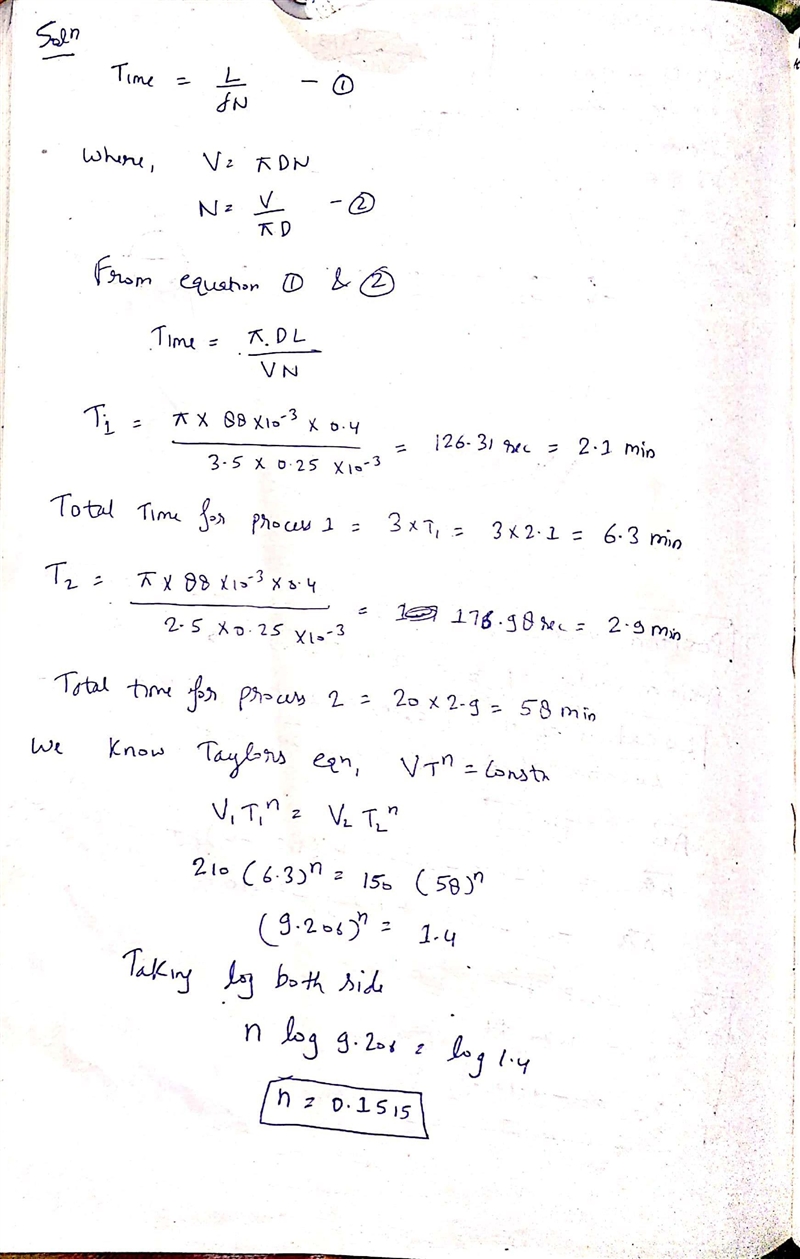 Soln
Time = L / fN - ①
Where, V = πDN
N = V / πD - ②
From equation ① & ②
Time = π.DL / VN
T1 = π x 88 x10^-3 x 0.4 / 3.5 x 0.25 x10^-3 = 126.31 sec = 2.1 min
Total Time for process 1 = 3 x T1 = 3 x 2.1 = 6.3 min
T2 = π x 88 x10^-3 x 0.4 / 2.5 x 0.25 x10^-3 = 176.98 sec = 2.9 min
Total time for process 2 = 20 x 2.9 = 58 min
We Know Taylors eqn, VT^n = Constn
V1 T1^n = V2 T2^n
210 (6.3)^n = 150 (58)^n
(9.206)^n = 1.4
Taking log both side
n log 9.206 = log 1.4
n = 0.1515